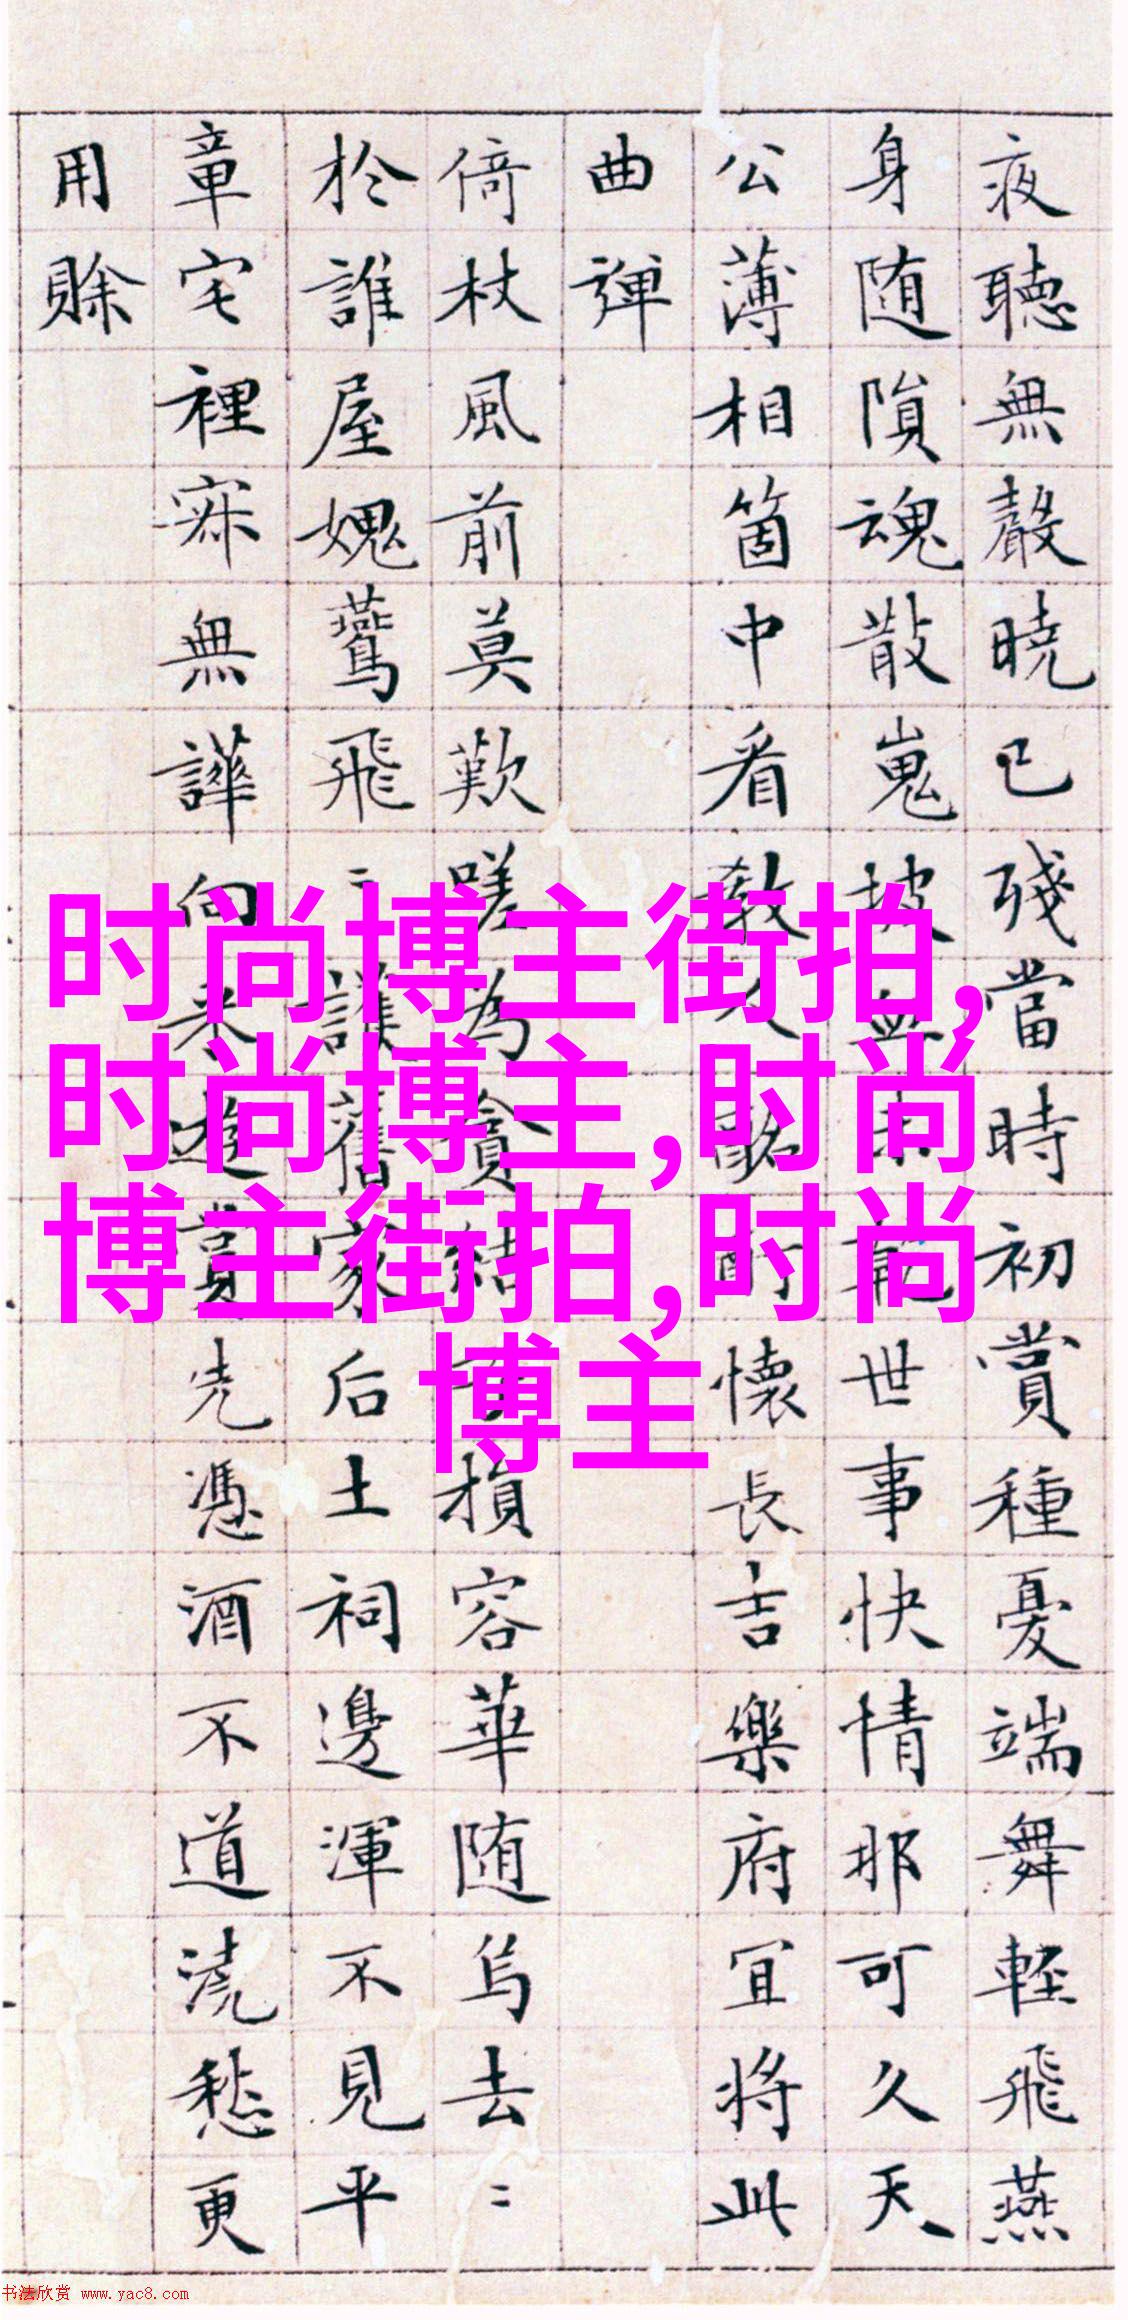 夜聽無聲曉已殘當時初賞種憂端舞輕飛燕
身随隕魂散嵬坡血未乾世事快情那可久天
公薄相箇中看教人酩酊懷長吉樂府宜將此
曲彈
倚杖風前莫歎嗟為貪結子損容華随烏去〻
於誰屋媿鷰飛〻護舊家后土祠邊渾不見平
章宅裡寐無譁向来遊賞先憑酒不道澆愁更
用賒
时尚博主街拍,
时尚博主,时尚
博主街拍,时尚
博主
书法欣赏 www.yac8.com